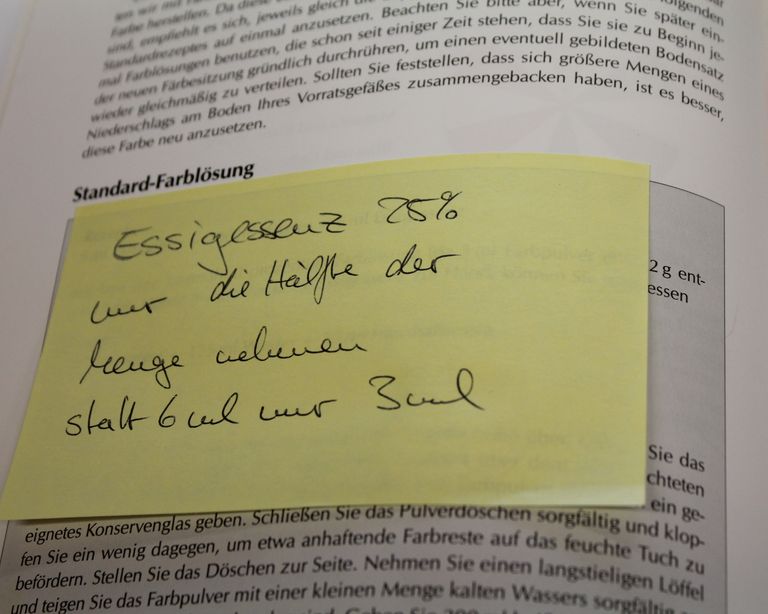 Farbe herstellen. Da diese
sind, empfiehlt es sich, jeweils gleich die
Standardrezeptes auf einmal anzusetzen. Beachten Sie bitte aber, wenn Sie später ein-
mal Farblösungen benutzen, die schon seit einiger Zeit stehen, dass Sie sie zu Beginn je-
der neuen Färbesitzung gründlich durchrühren, um einen eventuell gebildeten Bodensatz
wieder gleichmäßig zu verteilen. Sollten Sie feststellen, dass sich größere Mengen eines
Niederschlags am Boden Ihres Vorratsgefäßes zusammengebacken haben, ist es besser,
diese Farbe neu anzusetzen.
Standard-Farblösung
Essigessenz 25%
nur die Hälfte der
Menge nehmen
statt 6 ml nur 3 ml
2 g ent-
essen
Sie das
chteten
ein ge-
eignetes Konservenglas geben. Schließen Sie das Pulverdöschen sorgfältig und klop-
fen Sie ein wenig dagegen, um etwa anhaftende Farbreste auf das feuchte Tuch zu
befördern. Stellen Sie das Döschen zur Seite. Nehmen Sie einen langstieligen Löffel
und teigen Sie das Farbpulver mit einer kleinen Menge kalten Wassers sorgfältig